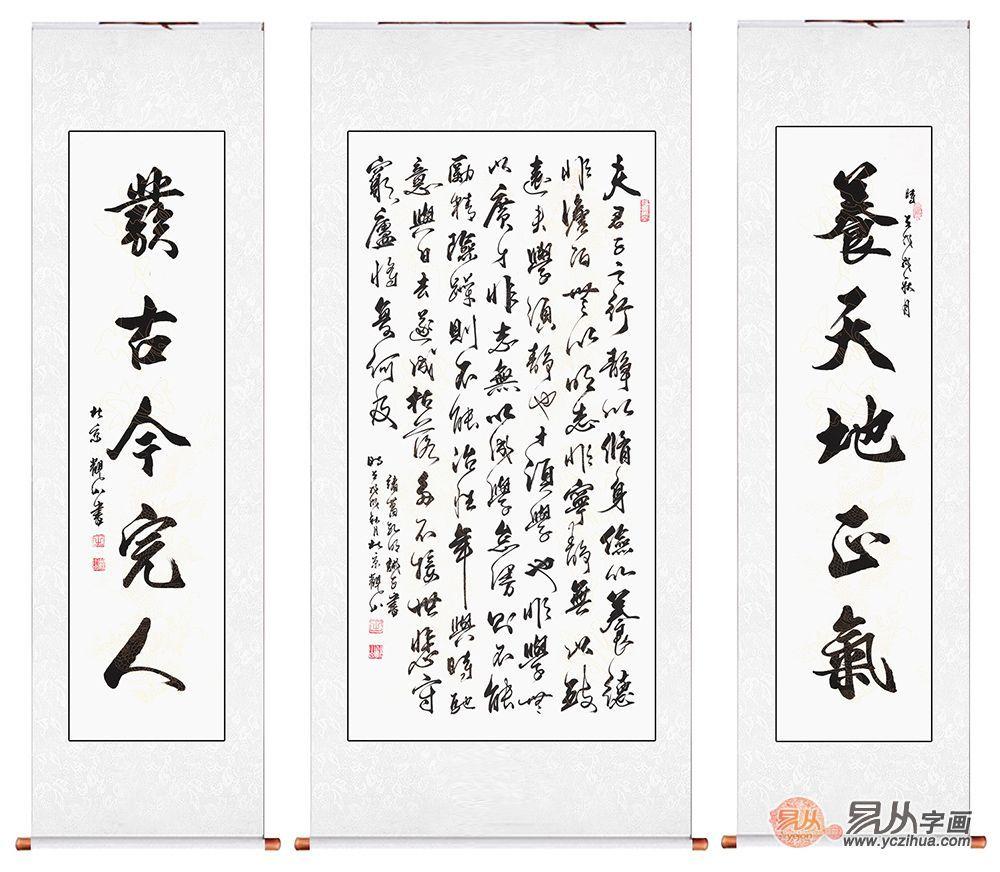 養天地正氣
戊戌秋月
夫君子之行靜以脩身儉以養德
非澹泊無以明志非寧靜無以致
遠夫學須靜也才須學也非學無
以廣才非志無以成學怠慢則不能
勵精險躁則不能冶性年與時馳
意與日去遂成枯落多不接世悲守
窮廬將復何及
諸葛孔明誡子書
戊戌秋月北京觀山
發古今完人
北京觀山書
易从字画
www.yczihua.com